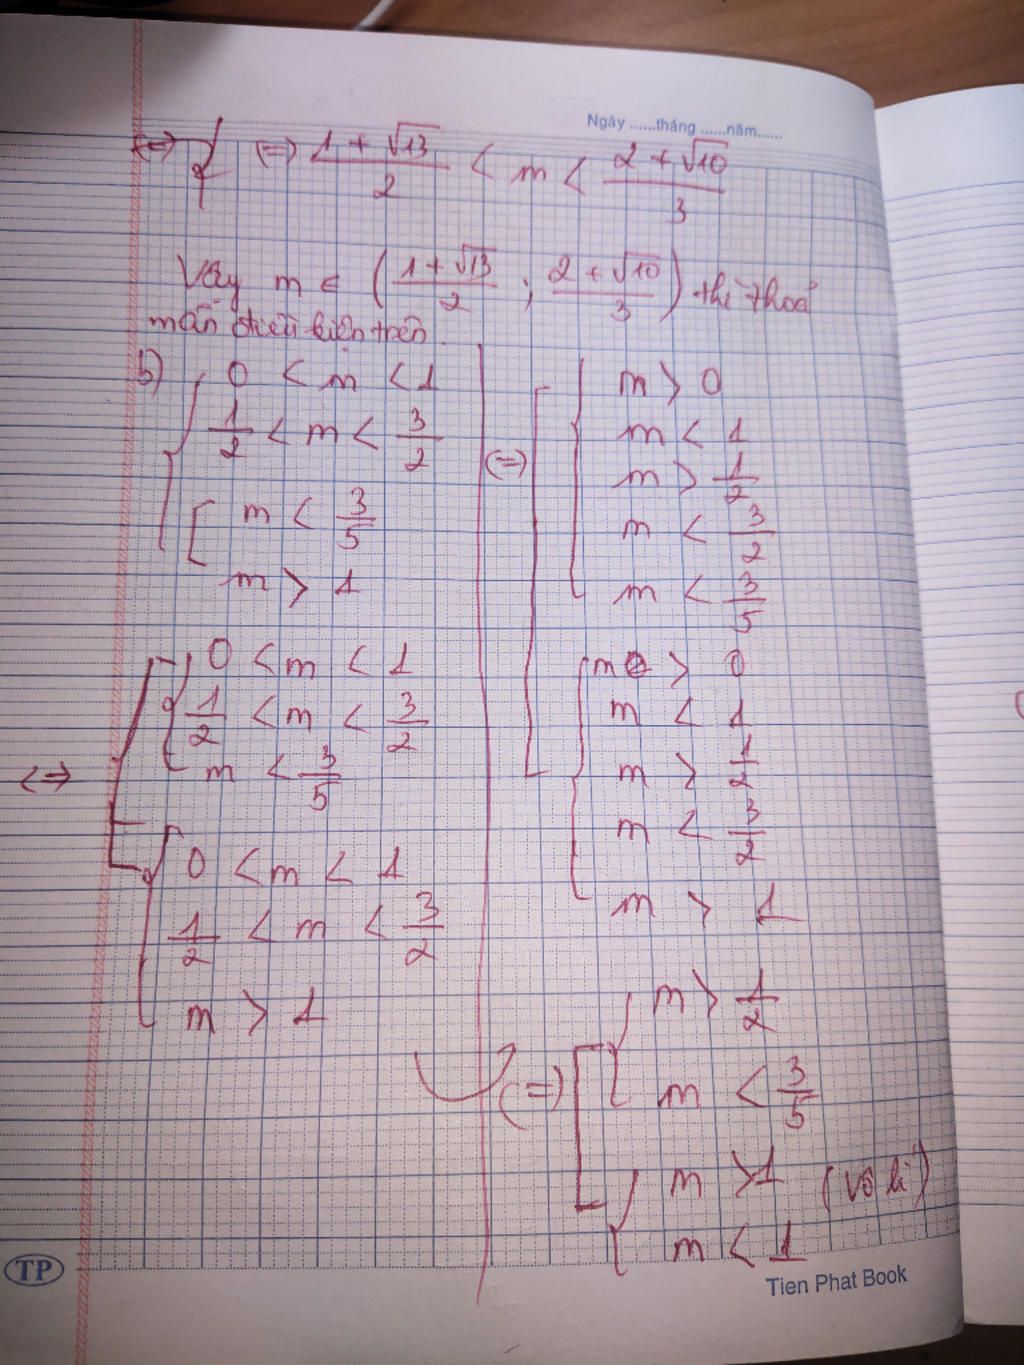 Ngày ......tháng ......năm......
<=> { (=) (1 + √13)/2 < m < (2 + √10)/3
Vậy m ∈ ((1 + √13)/2 ; (2 + √10)/3) thì thoả
mãn điều kiện trên.
b) { 0 < m < 1
1/2 < m < 3/2
[ m < 3/5
m > 1
<=> [ { 0 < m < 1
1/2 < m < 3/2
m < 3/5
{ 0 < m < 1
1/2 < m < 3/2
m > 1
(=) [ { m > 0
m < 1
m > 1/2
m < 3/2
m < 3/5
{ m > 0
m < 1
m > 1/2
m < 3/2
m > 1
(=) [ { m > 1/2
m < 3/5
{ m > 1 (vô lí)
m < 1
TP
Tien Phat Book